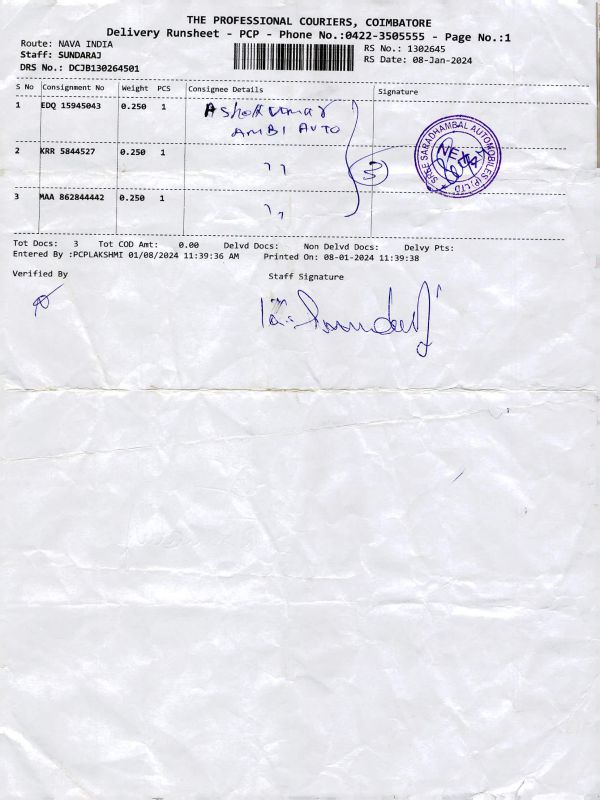 THE PROFESSIONAL COURIERS, COIMBATORE
Delivery Runsheet - PCP - Phone No.:0422-3505555 - Page No.:1
Route: NAVA INDIA
Staff: SUNDARAJ
DRS No.: DCJB130264501
RS No.: 1302645
RS Date: 08-Jan-2024
S No Consignment No Weight PCS Consignee Details Signature
1 EDQ 15945043 0.250 1 Ashok Kumar
AMBI AUTO
2 KRR 5844527 0.250 1 ,,
3 MAA 862844442 0.250 1 ,,
3
SREE SARADHAMBAL AUTOMOBILES (P) LTD
Tot Docs: 3 Tot COD Amt: 0.00 Delvd Docs: Non Delvd Docs: Delvy Pts:
Entered By :PCPLAKSHMI 01/08/2024 11:39:36 AM Printed On: 08-01-2024 11:39:38
Verified By
Staff Signature